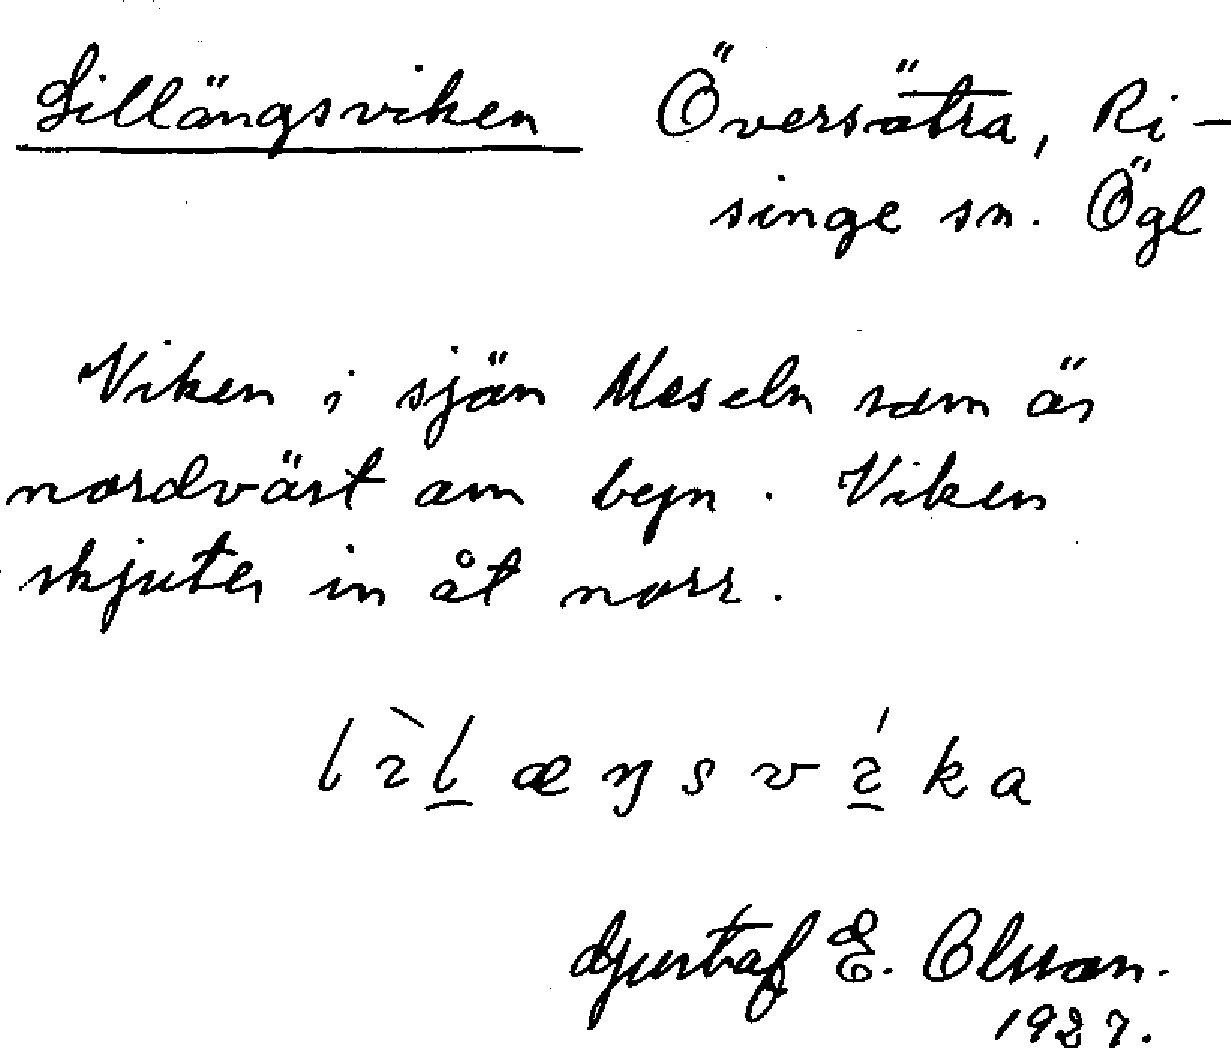 Lillängsviken Översätra, Ri-
singe sn. Ögl
Viken i sjön Meseln som är
nordväst om byn. Viken
skjuter in åt norr.
lìl̲æŋsví̲ka
Gustaf E. Olsson.
1927.